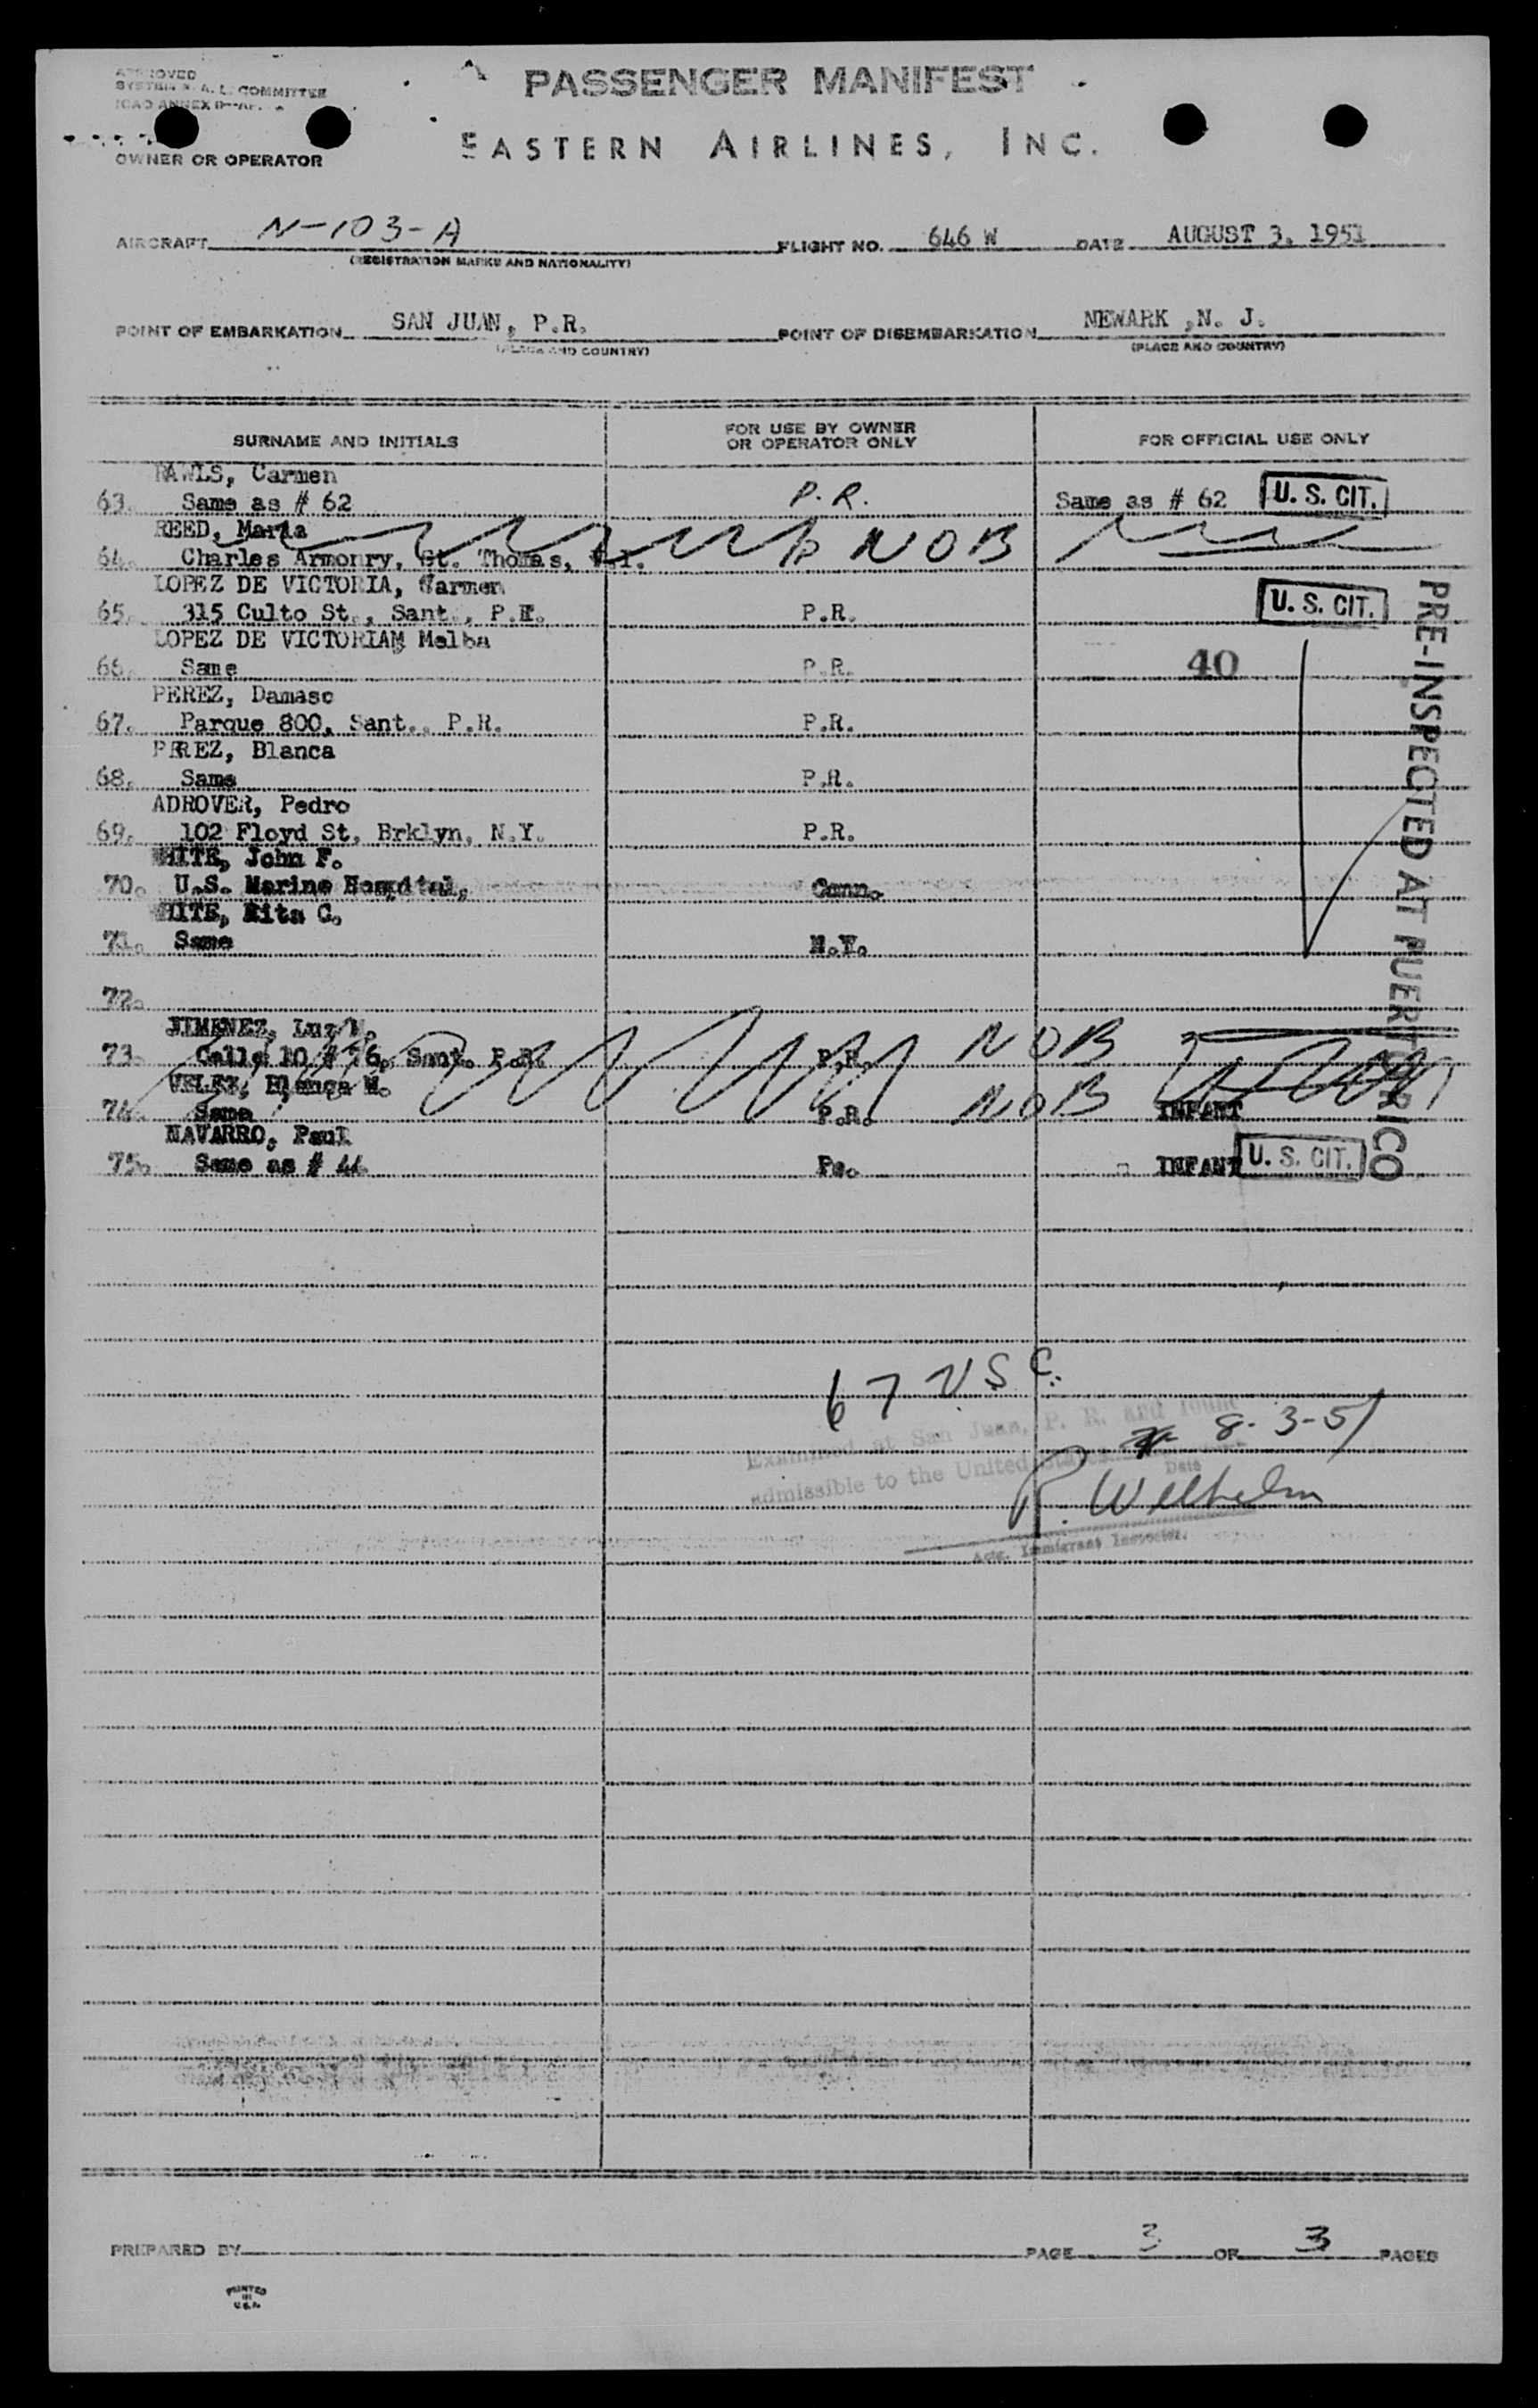 APPROVED
SYSTEM N. A. L. COMMITTEE
ICAO ANNEX
PASSENGER MANIFEST
EASTERN AIRLINES, INC.
OWNER OR OPERATOR
AIRCRAFT N-103-A FLIGHT NO. 646 W DATE AUGUST 3, 1951
(REGISTRATION MARKS AND NATIONALITY)
POINT OF EMBARKATION SAN JUAN, P.R. POINT OF DISEMBARKATION NEWARK ,N. J.
(PLACE AND COUNTRY) (PLACE AND COUNTRY)
SURNAME AND INITIALS FOR USE BY OWNER OR OPERATOR ONLY FOR OFFICIAL USE ONLY
RAWLS, Carmen
63. Same as # 62 P.R. Same as # 62 U. S. CIT.
REED, Maria
64. Charles Armonry, St. Thomas, V.I. NOB
LOPEZ DE VICTORIA, Carmen
65. 315 Culto St., Sant., P.R. P.R. U. S. CIT.
LOPEZ DE VICTORIAM Melba
66. Same P.R. 40
PEREZ, Damaso
67. Parque 800, Sant., P.R. P.R.
PEREZ, Blanca
68. Same P.R.
ADROVER, Pedro
69. 102 Floyd St, Brklyn, N.Y. P.R.
WHITE, John F.
70. U.S. Marine Hospital, Conn.
WHITE, Rita C.
71. Same N.Y.
72.
JIMENEZ, Luz N.
73. Calle 10 # 76, Sant. P.R. P.R. NOB
VELEZ, Blanca M.
74. Same P.R. NOB INFANT
NAVARRO, Paul
75. Same as # 44 Pa. INFANT U. S. CIT.
PRE-INSPECTED AT PUERTO RICO
67 U S C.
Examined at San Juan, P. R. and found 8-3-51
admissible to the United States Date
R. Wilhelm
Actg. Immigrant Inspector.
PREPARED BY PAGE 3 OF 3 PAGES
PRINTED
IN
U.S.A.